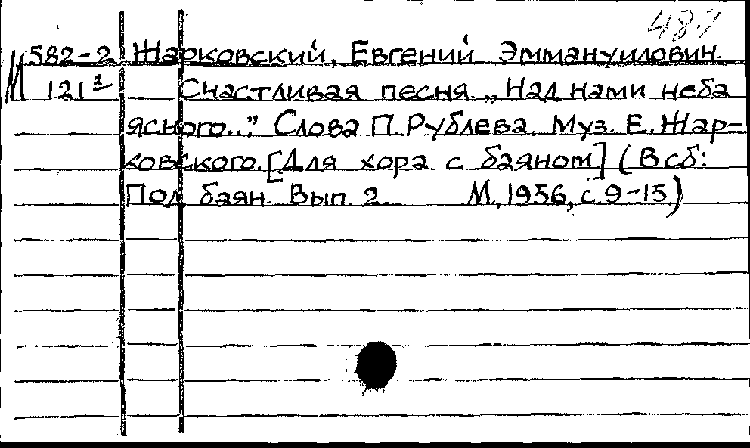 487
582-2 Жарковский, Евгений Эммануилович.
М 121² Счастливая песня „Над нами неба
ясного..." Слова П. Рублева. Муз. Е. Жар-
ковского. [Для хора с баяном] (В сб:
Под баян. Вып. 2. М., 1956, с. 9-15)